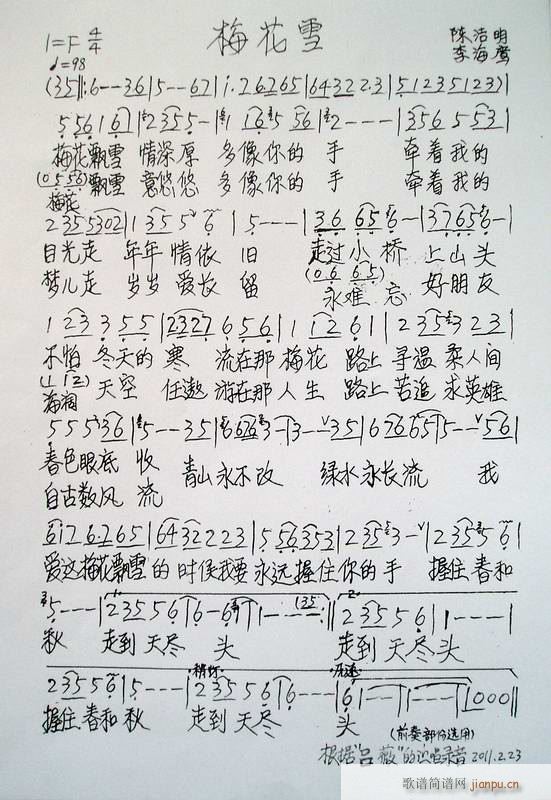 1=F 4/4 梅花雪 陈浩明
♩=98 李海鹰
(35‖:6--36|5--67|i.76765|64322.3|51235123)|
556167|2355-|1165 56|2---|356 553|
梅花飘雪 情深厚 多像你的 手 牵着我的
(0556)飘雪 意悠悠 多像你的 手 牵着我的
梅花
2355302|1355 6|5---|36 656-|37656-|
目光走 年年情依 旧 走过小桥 上山头
梦儿走 岁岁爱长 留 (06 65) 好朋友
永难忘
123 355|2327 656|1 12 61|2353 23|
不怕 冬天的 寒 流在那 梅花 路上 寻温 柔人间
(1 12) 天空 任遨 游在那 人生 路上 苦追 求英雄
海阔
555 36|5--35|66763-|3--35|676765|5--56|
春色眼底 收 青山永不改 绿水永长流 我
自古数风 流
6126765|6432223|556353|2353-|2355 6|
爱这梅花飘雪的 时候我要 永远握住你的手 握住 春和
5---|23556|6-6-|1---35:‖23556|1---|
秋 走到天尽 头 走到天尽头
稍慢
23556|5---|23556|6---|6 1---|1---|1000‖
握住春和秋 走到天尽 头
(前奏部份选用)
根据"吕薇"的演唱录音 2011.2.23
歌谱简谱网
jianpu.cn